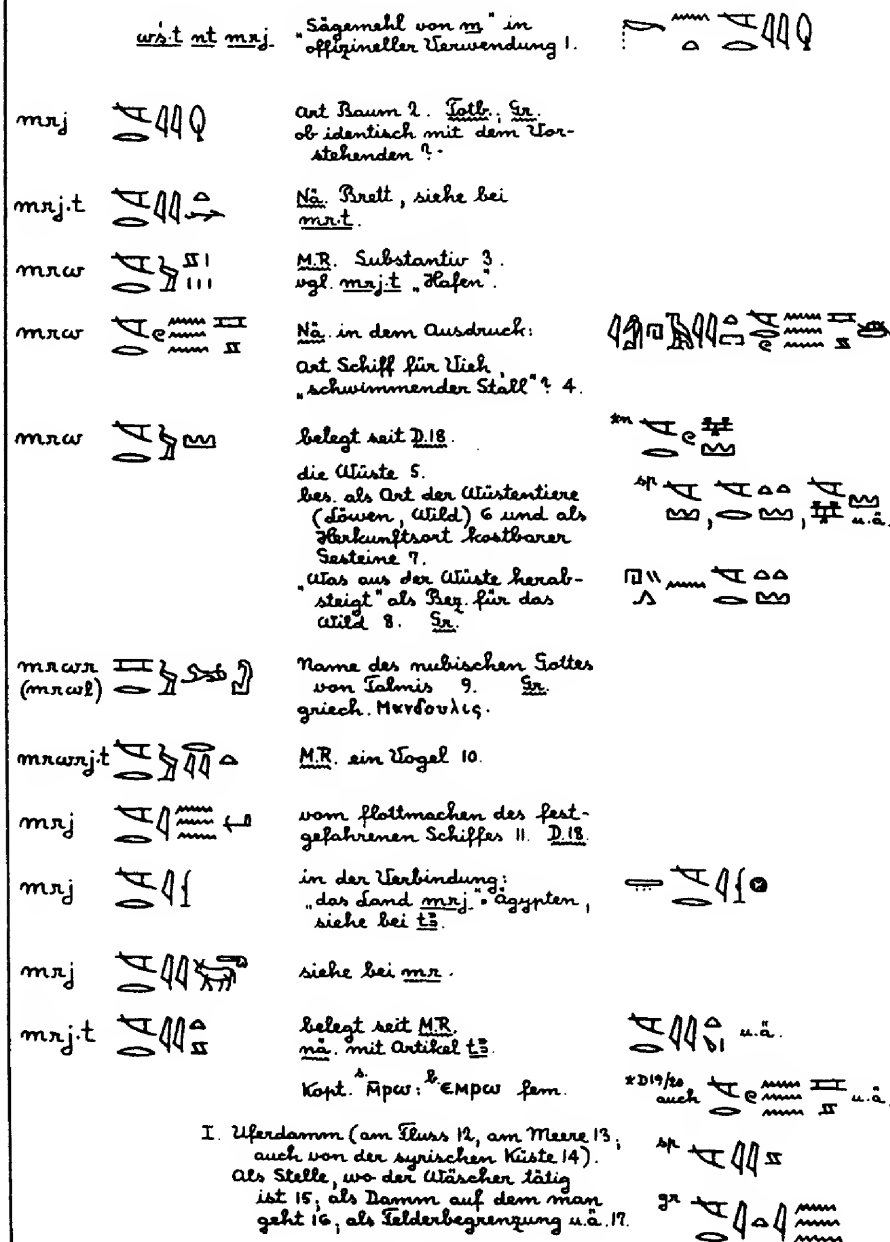 wś.t nt mrj. „Sägemehl von m" in
offizineller Verwendung 1.
mrj Art Baum 2. Totb.; Gr.
ob identisch mit dem Vor-
stehenden?
mrj.t Nä. Brett, siehe bei
mr.t.
mrw M.R. Substantiv 3.
vgl. mrj.t „Hafen".
mrw Nä. in dem Ausdruck:
Art Schiff für Vieh,
„schwimmender Stall"? 4.
mrw belegt seit D.18.
*n
die Wüste 5.
bes. als Ort der Wüstentiere
sp , , u.ä.
(Löwen, Wild) 6 und als
Herkunftsort kostbarer
Gesteine 7.
„Was aus der Wüste herab-
steigt" als Bez. für das
Wild 8. Gr.
mrwr Name des nubischen Gottes
(mrwl) von Talmis 9. Gr.
griech. Μανδουλις.
mrwrj.t M.R. ein Vogel 10.
mrj vom flottmachen des fest-
gefahrenen Schiffes 11. D.18.
mrj in der Verbindung:
„das Land mrj" = Ägypten,
siehe bei tꜣ.
mrj siehe bei mr.
mrj.t belegt seit M.R. u.ä.
nä. mit Artikel tꜣ.
Kopt. s. M̄ⲣⲱ: b. ⲉⲙⲣⲱ fem. *D19/20 auch u.ä.
I. Uferdamm (am Fluss 12, am Meere 13; sp
auch von der syrischen Küste 14).
Als Stelle, wo der Wäscher tätig
ist 15, als Damm auf dem man gr
geht 16, als Felderbegrenzung u.ä. 17.